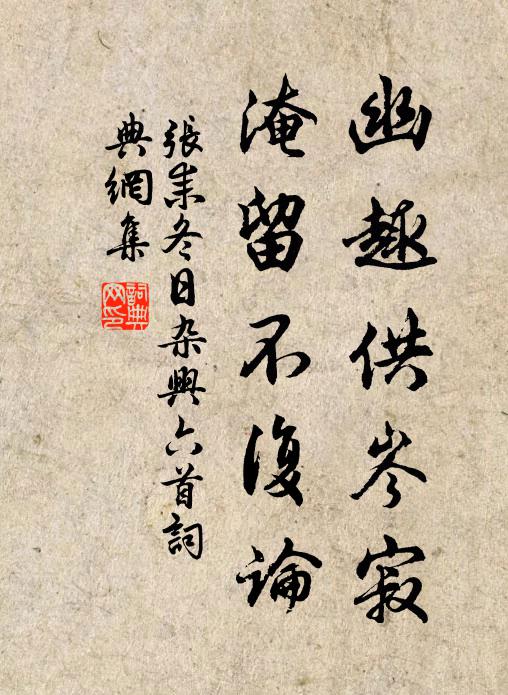 幽趣供岑寂
淹留不復論
張耒冬日杂興六首詞
典網集
詞典
网印